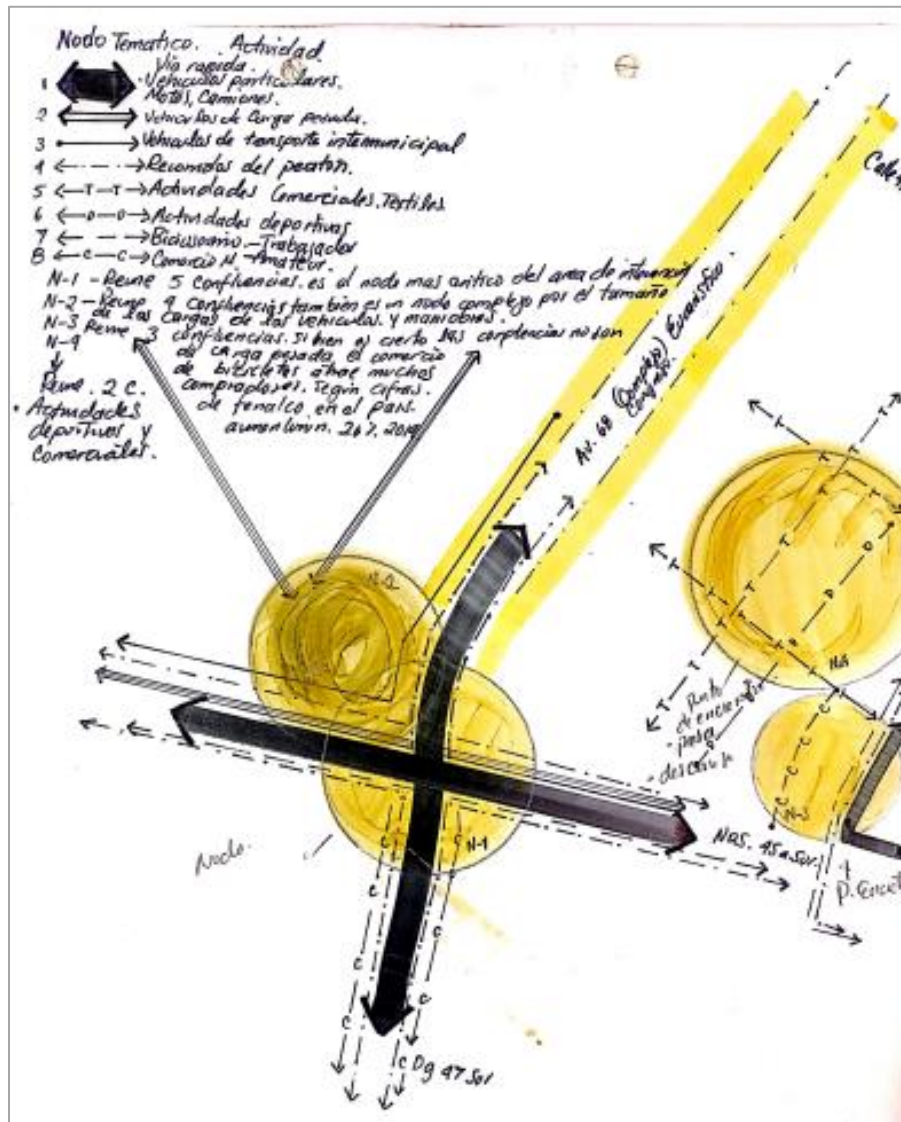 Nodo Tematico. Actividad
Via rapida.
1 Vehiculos particulares.
Motos, Camiones.
2 Vehiculos de Carga pesada.
3 Vehiculos de transporte intermunicipal
4 Recorridos del peaton.
5 T T Actividades Comerciales. Textiles
6 D D Actividades deportivas
7 Biciusuario - Trabajador
8 C C Comercio N - Amateur.
N-1 - Reune 5 confluencias. es el nodo mas critico del area de
N-2 - Reune 4 confluencias también es un nodo complejo por el tamaño
de las cargas de los vehiculos. y maniobras.
N-3 Reune 3 confluencias. Si bien es cierto las no son
N-4 de carga pesada el comercio
de bicicletas atrae muchos
Reune. 2 C. compradores. Según cifras.
• Actividades de fenalco en el pais
deportivas y
Comerciales.
Av. 68 (Complejo) Eucaristico
N-2
N-1
Nodo.
NQS. 45 a Sur.
Dg 47 Sur
Punto
de encuentro
para
descanso
N4
N-3